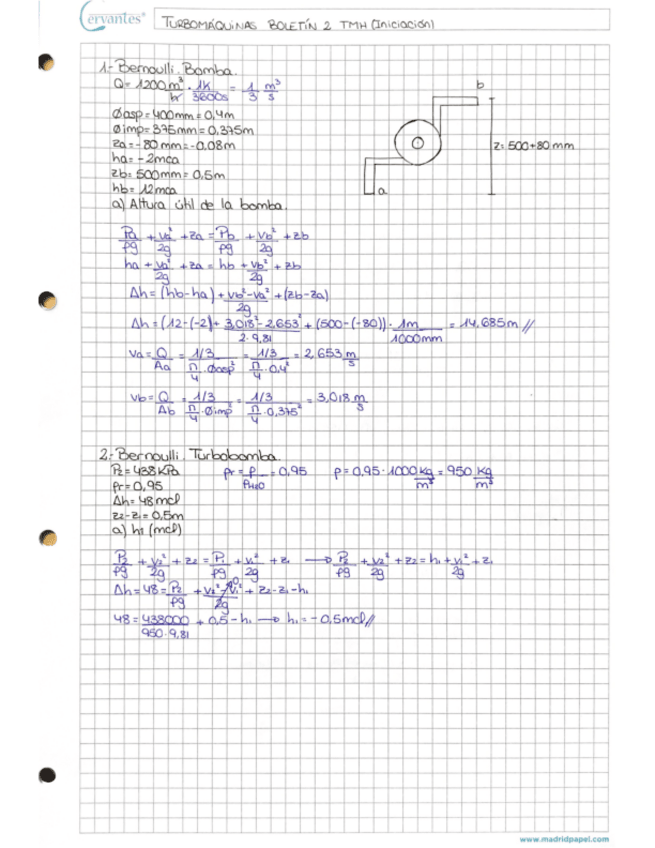 Cervantes®
TURBOMÁQUINAS BOLETÍN 2 TMH (Iniciación)
1.- Bernoulli. Bomba.
Q= 1200 m³/hr · 1h/3600s = 1/3 m³/s
Øasp = 400mm = 0,4m
Øimp = 375mm = 0,375m
za = -80mm = -0,08m
ha = -2mca
zb = 500mm = 0,5m
hb = 12mca
a) Altura útil de la bomba.
b
z= 500+80 mm
a
Pa/ρg + va²/2g + za = Pb/ρg + vb²/2g + zb
ha + va²/2g + za = hb + vb²/2g + zb
Δh = (hb-ha) + vb²-va²/2g + (zb-za)
Δh = (12-(-2)) + 3,018²-2,653²/2·9,81 + (500-(-80)) · 1m/1000mm = 14,685m //
va = Q/Aa = 1/3/π/4·Øasp² = 1/3/π/4·0,4² = 2,653 m/s
vb = Q/Ab = 1/3/π/4·Øimp² = 1/3/π/4·0,375² = 3,018 m/s
2.- Bernoulli. Turbobomba.
P2 = 438KPa
ρr = ρ/ρH2O = 0,95
ρ = 0,95·1000 kg/m³ = 950 kg/m³
ρr = 0,95
Δh = 48mcl
z2-z1 = 0,5m
a) h1 (mcl)
P2/ρg + v2²/2g + z2 = P1/ρg + v1²/2g + z1 → P2/ρg + v2²/2g + z2 = h1 + v1²/2g + z1
Δh = 48 = P2/ρg + v2²-v1²/2g 0 + z2-z1-h1
48 = 438000/950·9,81 + 0,5-h1 → h1 = -0,5mcl //
www.madridpapel.com